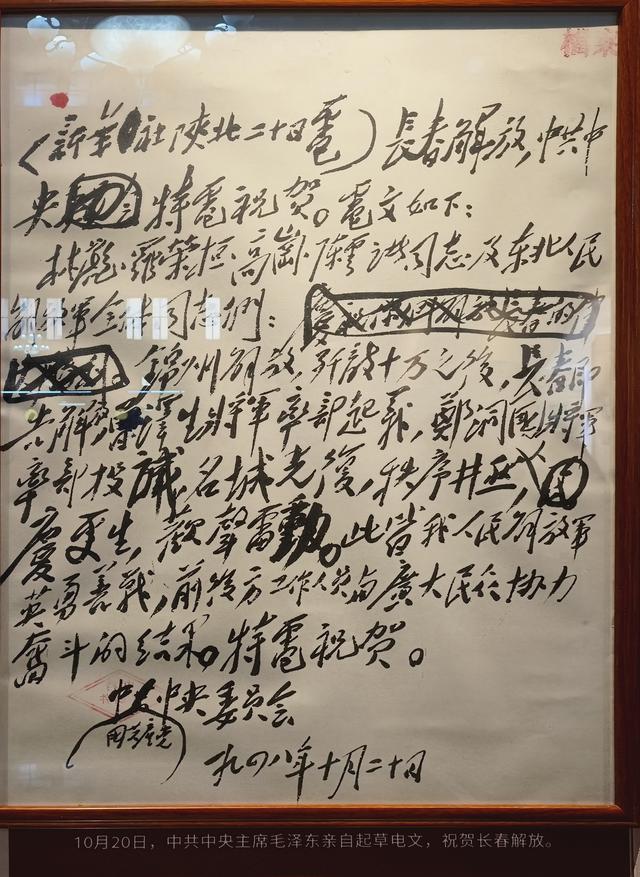 （新华社陕北二十日電）長春解放，中共中
央特電祝贺。電文如下：
林彪、羅荣桓、高崗、陈雲諸同志及东北人民
解放軍全体同志們：
錦州解放，歼敌十万之後，長春即
告解放，曾澤生将軍率部起義，鄭洞國将軍
率部投誠，名城光復，秩序井然，人民
慶更生，歡聲雷動。此皆我人民解放軍
英勇善戰，前後方工作人員与廣大民众协力
奮斗的结果。特電祝贺。
中共中央委員会
一九四八年十月二十日
10月20日，中共中央主席毛泽东亲自起草电文，祝贺长春解放。